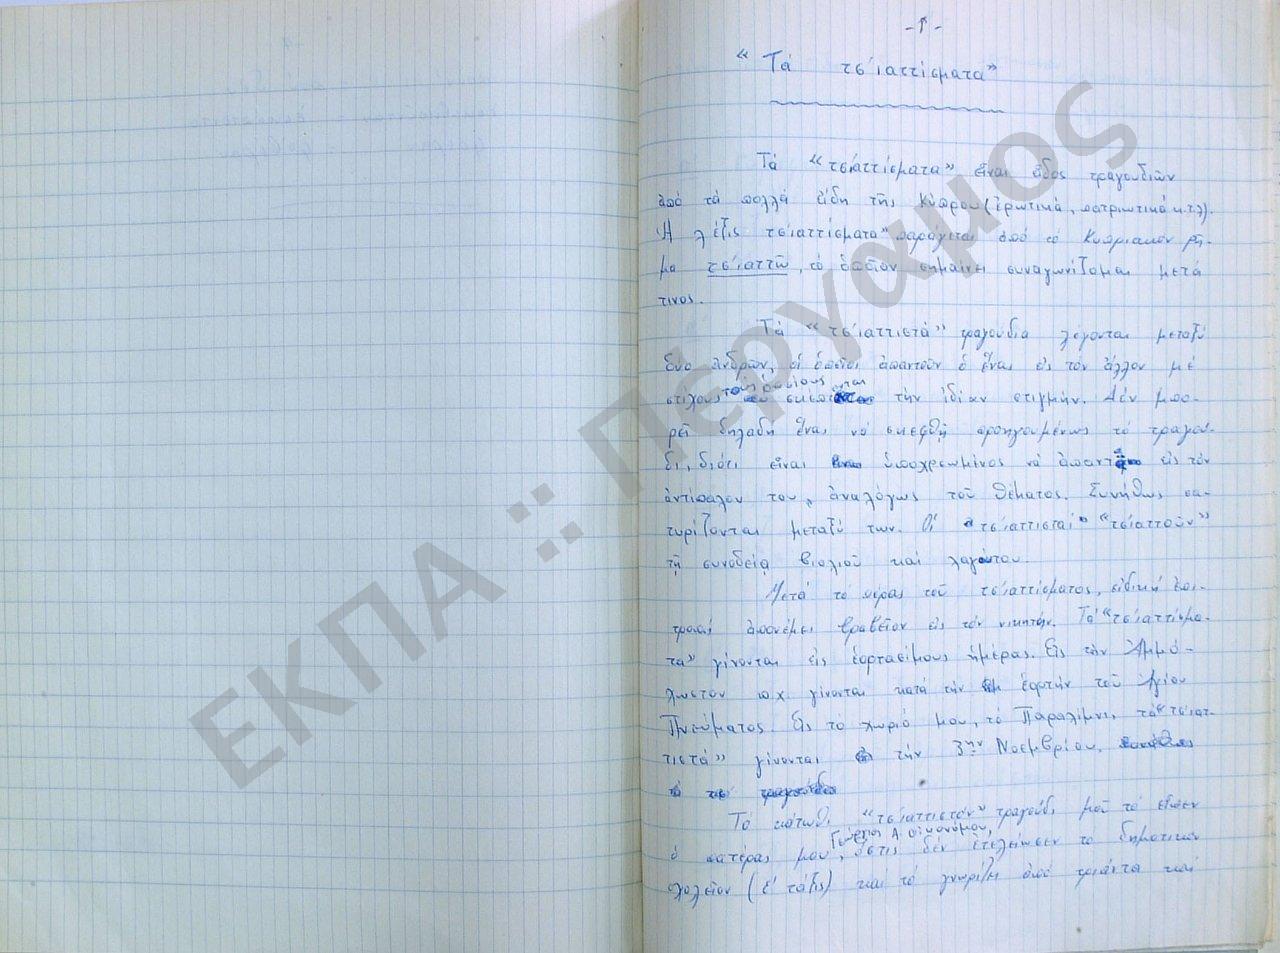 -1-
"Τά τσ̌ιαττίσματα"
Τά "τσ̌ιαττίσματα" εἶναι εἶδος τραγουδιῶν
ἀπό τά πολλά εἴδη τῆς Κύπρου (ἐρωτικά, πατριωτικά κ.τ.λ).
Ἡ λέξις τσ̌ιαττίσματα" παράγεται ἀπό τό Κυπριακόν ρῆ-
μα τσ̌ιαττῶ, τό ὁποῖον σημαίνει συναγωνίζομαι μετά
τινος.
Τά "τσ̌ιαττιστά" τραγούδια λέγονται μεταξύ
δύο ἀνδρῶν, οἱ ὁποῖοι ἀπαντοῦν ὁ ἕνας εἰς τόν ἄλλον μέ
στίχους τούς ὁποίους σκέπτονται τήν ἰδίαν στιγμήν. Δέν μπο-
ρεῖ δηλαδή ἕνας νά σκεφθῇ προηγουμένως τό τραγού-
δι, διότι εἶναι ὑποχρεωμένος νά ἀπαντᾷ εἰς τόν
ἀντίπαλον του, ἀναλόγως τοῦ θέματος. Συνήθως σα-
τυρίζονται μεταξύ των. Οἱ "τσ̌ιαττισταί" "τσ̌ιαττοῦν"
τῇ συνοδείᾳ βιολιοῦ καί λαγούτου.
Μετά τό πέρας τοῦ τσ̌ιαττίσματος, εἰδική ἐπι-
τροπή ἀπονέμει βραβεῖον εἰς τόν νικητήν. Τά "τσ̌ιαττίσμα-
τα" γίνονται εἰς ἑορτασίμους ἡμέρας. Εἰς τήν Ἀμμό-
χωστον π.χ. γίνονται κατά τήν ἑορτήν τοῦ Ἁγίου
Πνεύματος. Εἰς τό χωριό μου, τό Παραλίμνι, τά "τσ̌ιατ-
τιστά" γίνονται τήν 3ην Νοεμβρίου.
Τό κάτωθι "τσ̌ιαττιστόν" τραγούδι μοῦ τό εἶπεν
ὁ πατέρας μου, Γεώργιος Α. Οἰκονόμου, ὅστις δέν ἐτελείωσεν τό δημοτικόν
σχολεῖον (ε' τάξις) καί τό γνωρίζει ἀπό τριάντα καί
ΕΚΠΑ :: Πέργαμος